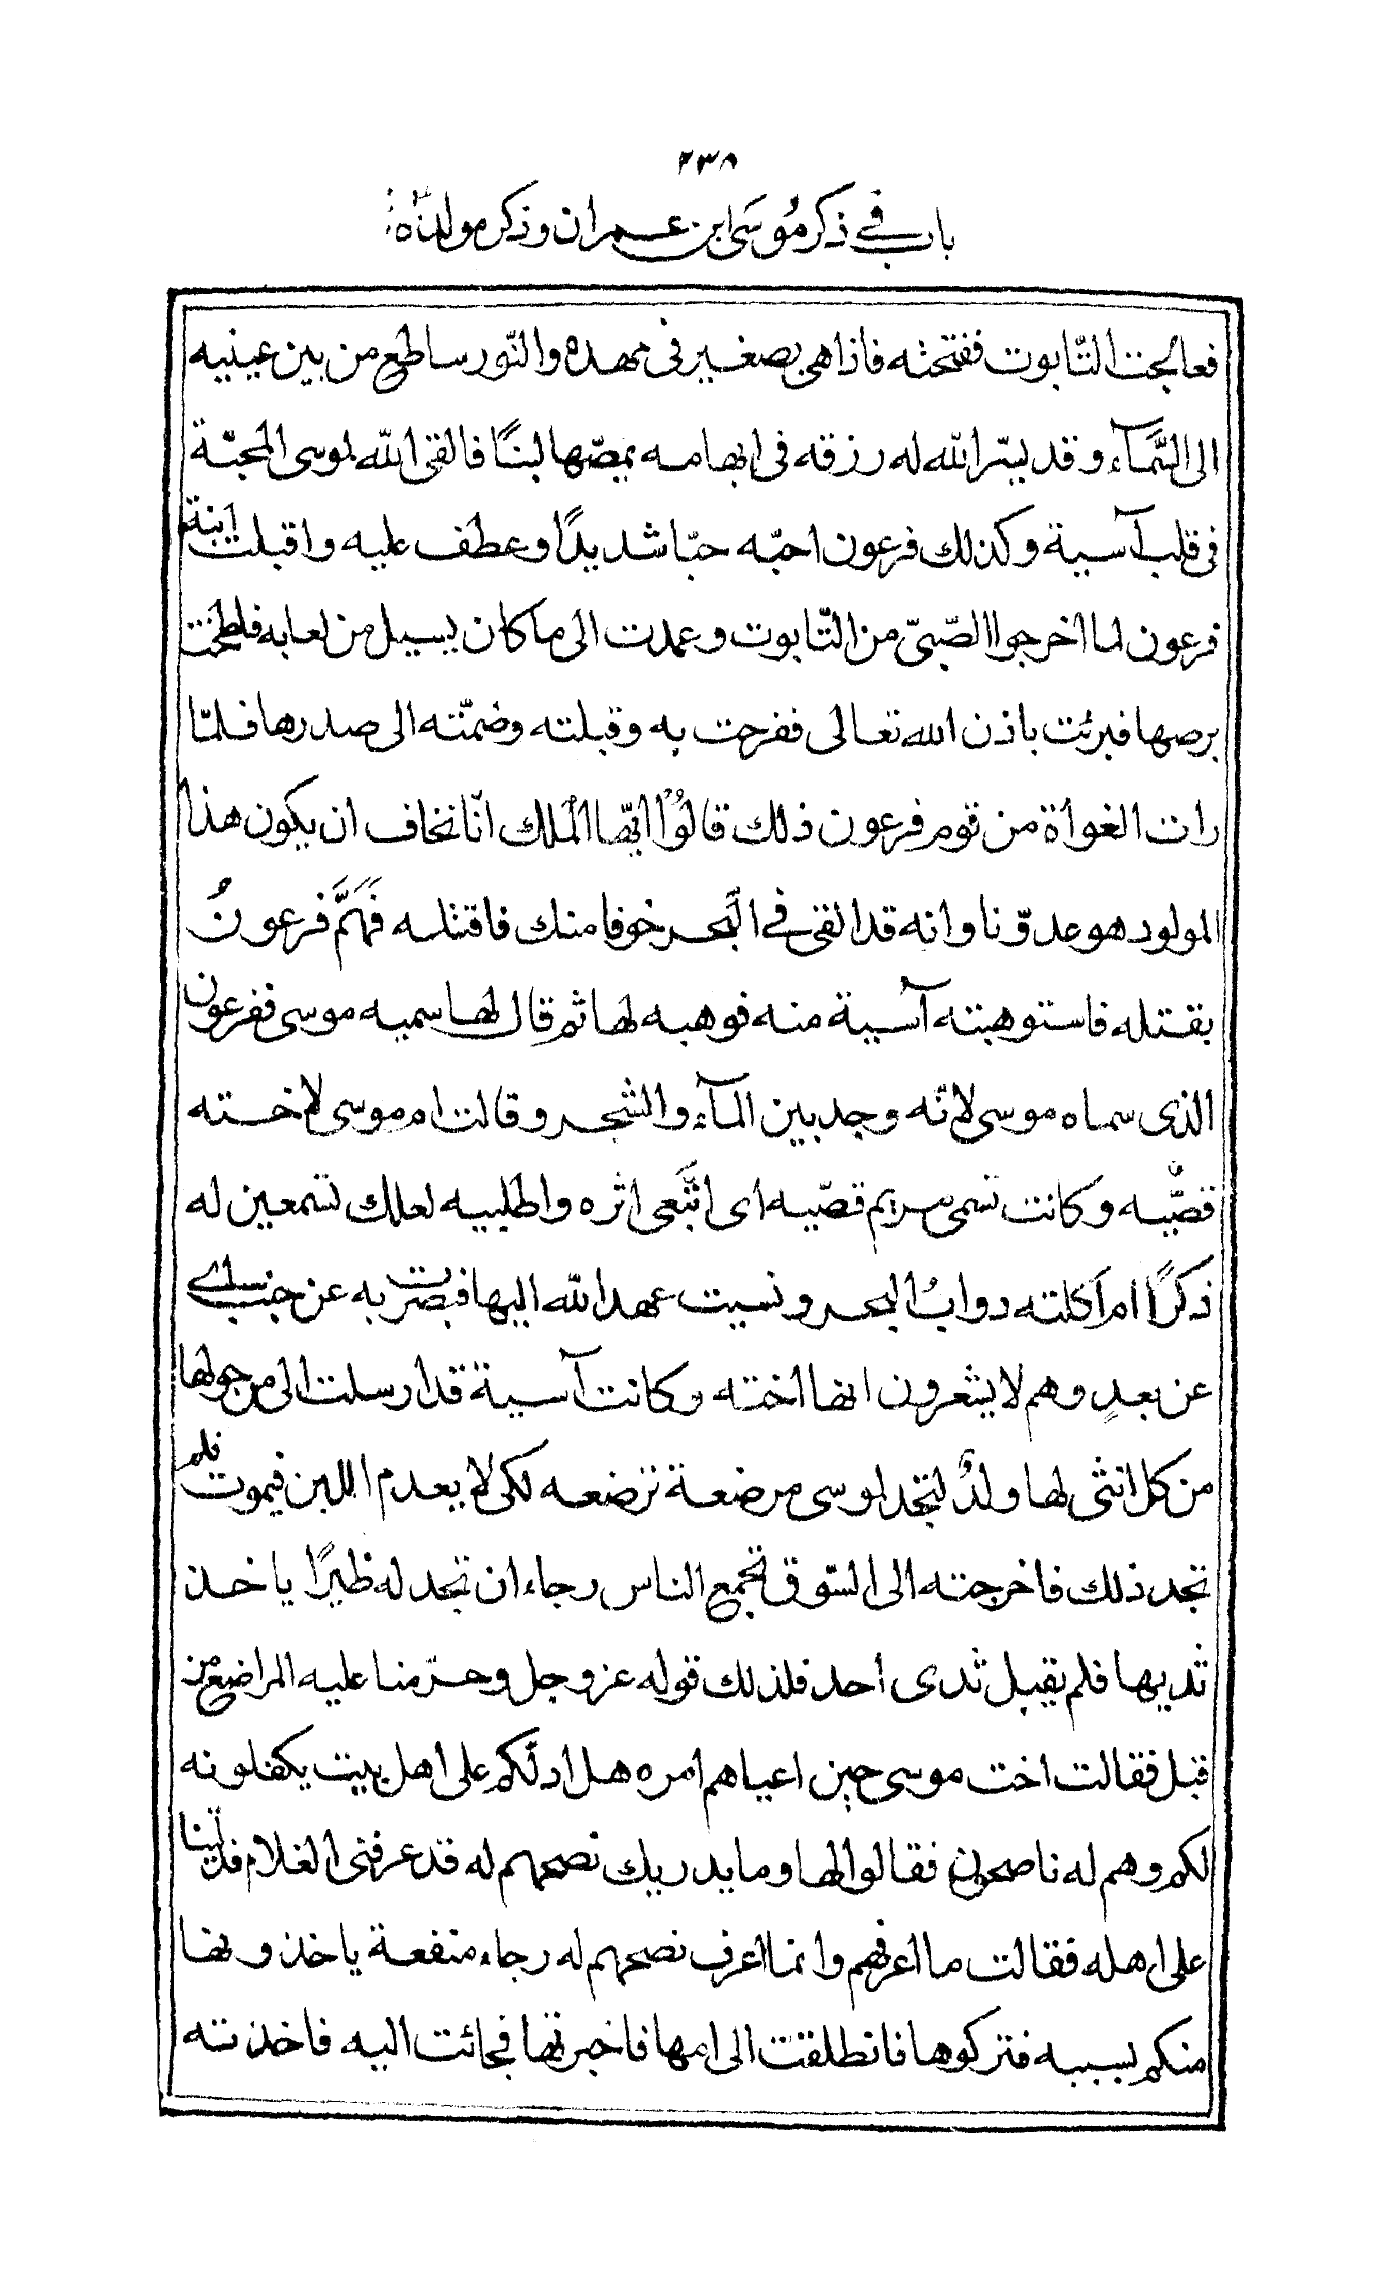 ٢٣٨
باب في ذكر موسى ابن عمران وذكر مولده
فعالجت التّابوت ففتحته فاذا هي بصغير فى مهده والنّور ساطع من بين عينيه
الى السّمآء وقد يسّر الله له رزقه فى ابهامه يمصّها لبنًا فالقى الله لموسى المحبّة
فى قلب آسية وكذلك فرعون احبّه حبّا شديدًا وعطف عليه واقبلت ابنة
فرعون لما اخرجوا الصّبىّ من التّابوت وعمدت الى ما كان يسيل من لعابه فلطخت
برصها فبرئت باذن الله تعالى ففرحت به وقبلته وضمّته الى صدرها فلمّا
رات الغواة من قوم فرعون ذلك قالوُا ايّها الملك انّا نخاف ان يكون هذا
المولود هو عدوّنا وانه قد القى في البَحر خوفا منك فاقتله فَهَمَّ فرعونُ
بقتله فاستوهبته آسية منه فوهبه لها ثم قال لها سميه موسى ففرعون
الذى سماه موسى لانّه وجد بين المآء والشّجر وقالت ام موسى لاخته
قصّيه وكانت تسمى مريم قصّيه اى اتّبعى اثره واطلبيه لعلك تسمعين له
ذكرًا ام اكلته دوابُ البحر ونسيت عهد الله اليها فبصرت به عن جنب اے
عن بعدٍ وهم لا يشعرون انها اخته وكانت آسية قد ارسلت الى من حولها
من كل انثى لها ولدٌ لتجد لموسى مرضعة ترضعه لكى لا يعدم اللبن فيموت فلم
تجد ذلك فاخرجته الى السّوق تجمع الناس رجاء ان تجد له ظيرًا ياخذ
ثديها فلم يقبل ثدى احد فلذلك قوله عز وجل وحرّمنا عليه المراضع من
قبل فقالت اخت موسى حين اعياهم امره هل ادلّكم على اهل بيت يكفلونه
لكم وهم له ناصحون فقالوا لها وما يدريك نصحهم له قد عرفتى الغلام فدلّينا
على اهله فقالت ما اعرفهم وانما اعرف نصحهم له رجاء منفعة ياخذونها
منكم بسببه فتركوها فانطلقت الى امها فاخبرتها فجائت اليه فاخذته